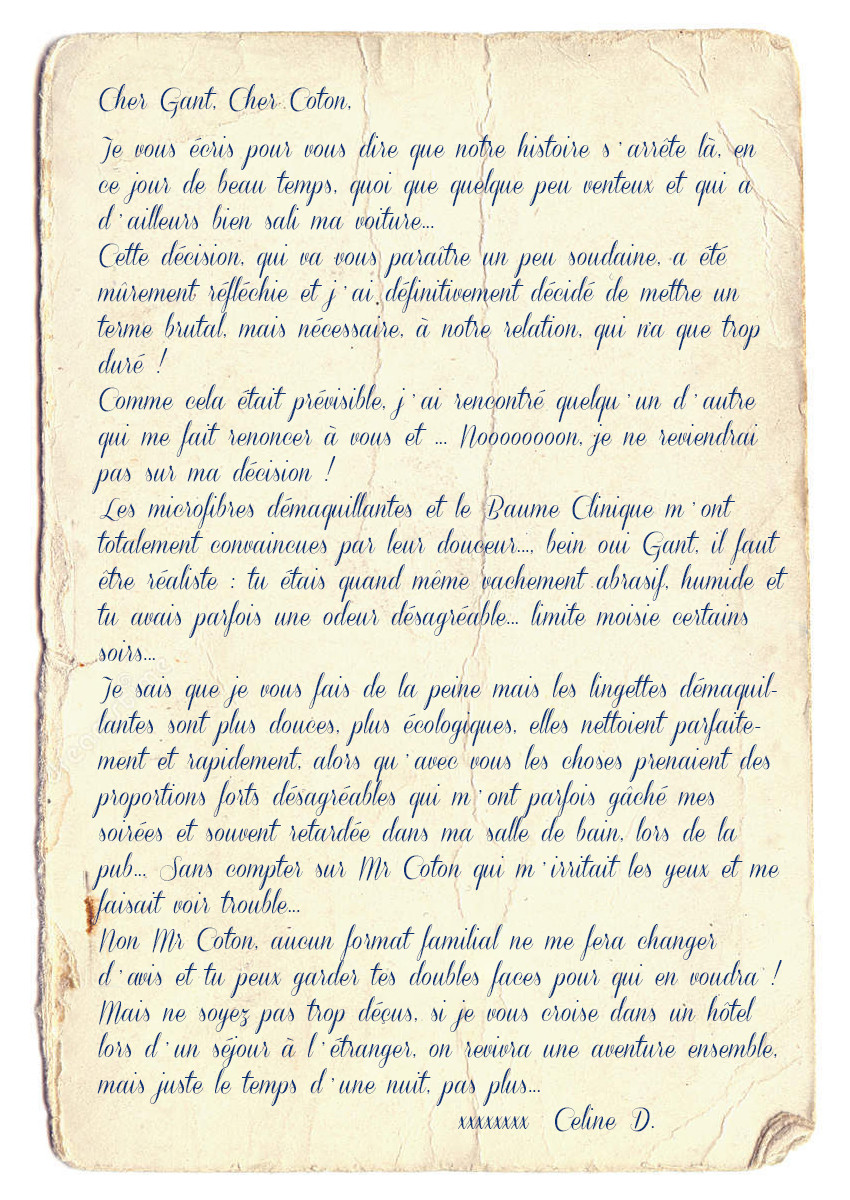 Cher Gant, Cher Coton,
Je vous écris pour vous dire que notre histoire s'arrête là, en
ce jour de beau temps, quoi que quelque peu venteux et qui a
d'ailleurs bien sali ma voiture...
Cette décision, qui va vous paraître un peu soudaine, a été
mûrement réfléchie et j'ai définitivement décidé de mettre un
terme brutal, mais nécessaire, à notre relation, qui n'a que trop
duré !
Comme cela était prévisible, j'ai rencontré quelqu'un d'autre
qui me fait renoncer à vous et ... Noooooooon, je ne reviendrai
pas sur ma décision !
Les microfibres démaquillantes et le Baume Clinique m'ont
totalement convaincues par leur douceur..., bein oui Gant, il faut
être réaliste : tu étais quand même vachement abrasif, humide et
tu avais parfois une odeur désagréable... limite moisie certains
soirs...
Je sais que je vous fais de la peine mais les lingettes démaquil-
lantes sont plus douces, plus écologiques, elles nettoient parfaite-
ment et rapidement, alors qu'avec vous les choses prenaient des
proportions forts désagréables qui m'ont parfois gâché mes
soirées et souvent retardée dans ma salle de bain, lors de la
pub... Sans compter sur Mr Coton qui m'irritait les yeux et me
faisait voir trouble...
Non Mr Coton, aucun format familial ne me fera changer
d'avis et tu peux garder tes doubles faces pour qui en voudra !
Mais ne soyez pas trop déçus, si je vous croise dans un hôtel
lors d'un séjour à l'étranger, on revivra une aventure ensemble,
mais juste le temps d'une nuit, pas plus...
xxxxxxxx Celine D.